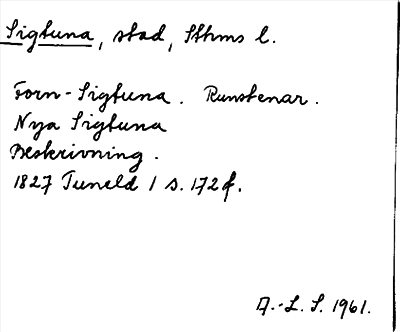 Sigtuna, stad, Sthms l.
Forn-Sigtuna. Runstenar.
Nya Sigtuna
Beskrivning.
1827 Tuneld 1 s. 172 f.
A.-L. S. 1961.